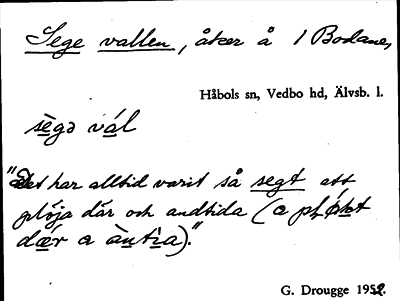 Sege vallen, åker å 1 Bodane,
Håbols sn, Vedbo hd, Älvsb. l.
sègə vál
"Det har alltid varit så segt att
plöja där och andtida (a
dær a àntia)."
G. Drougge 1952.